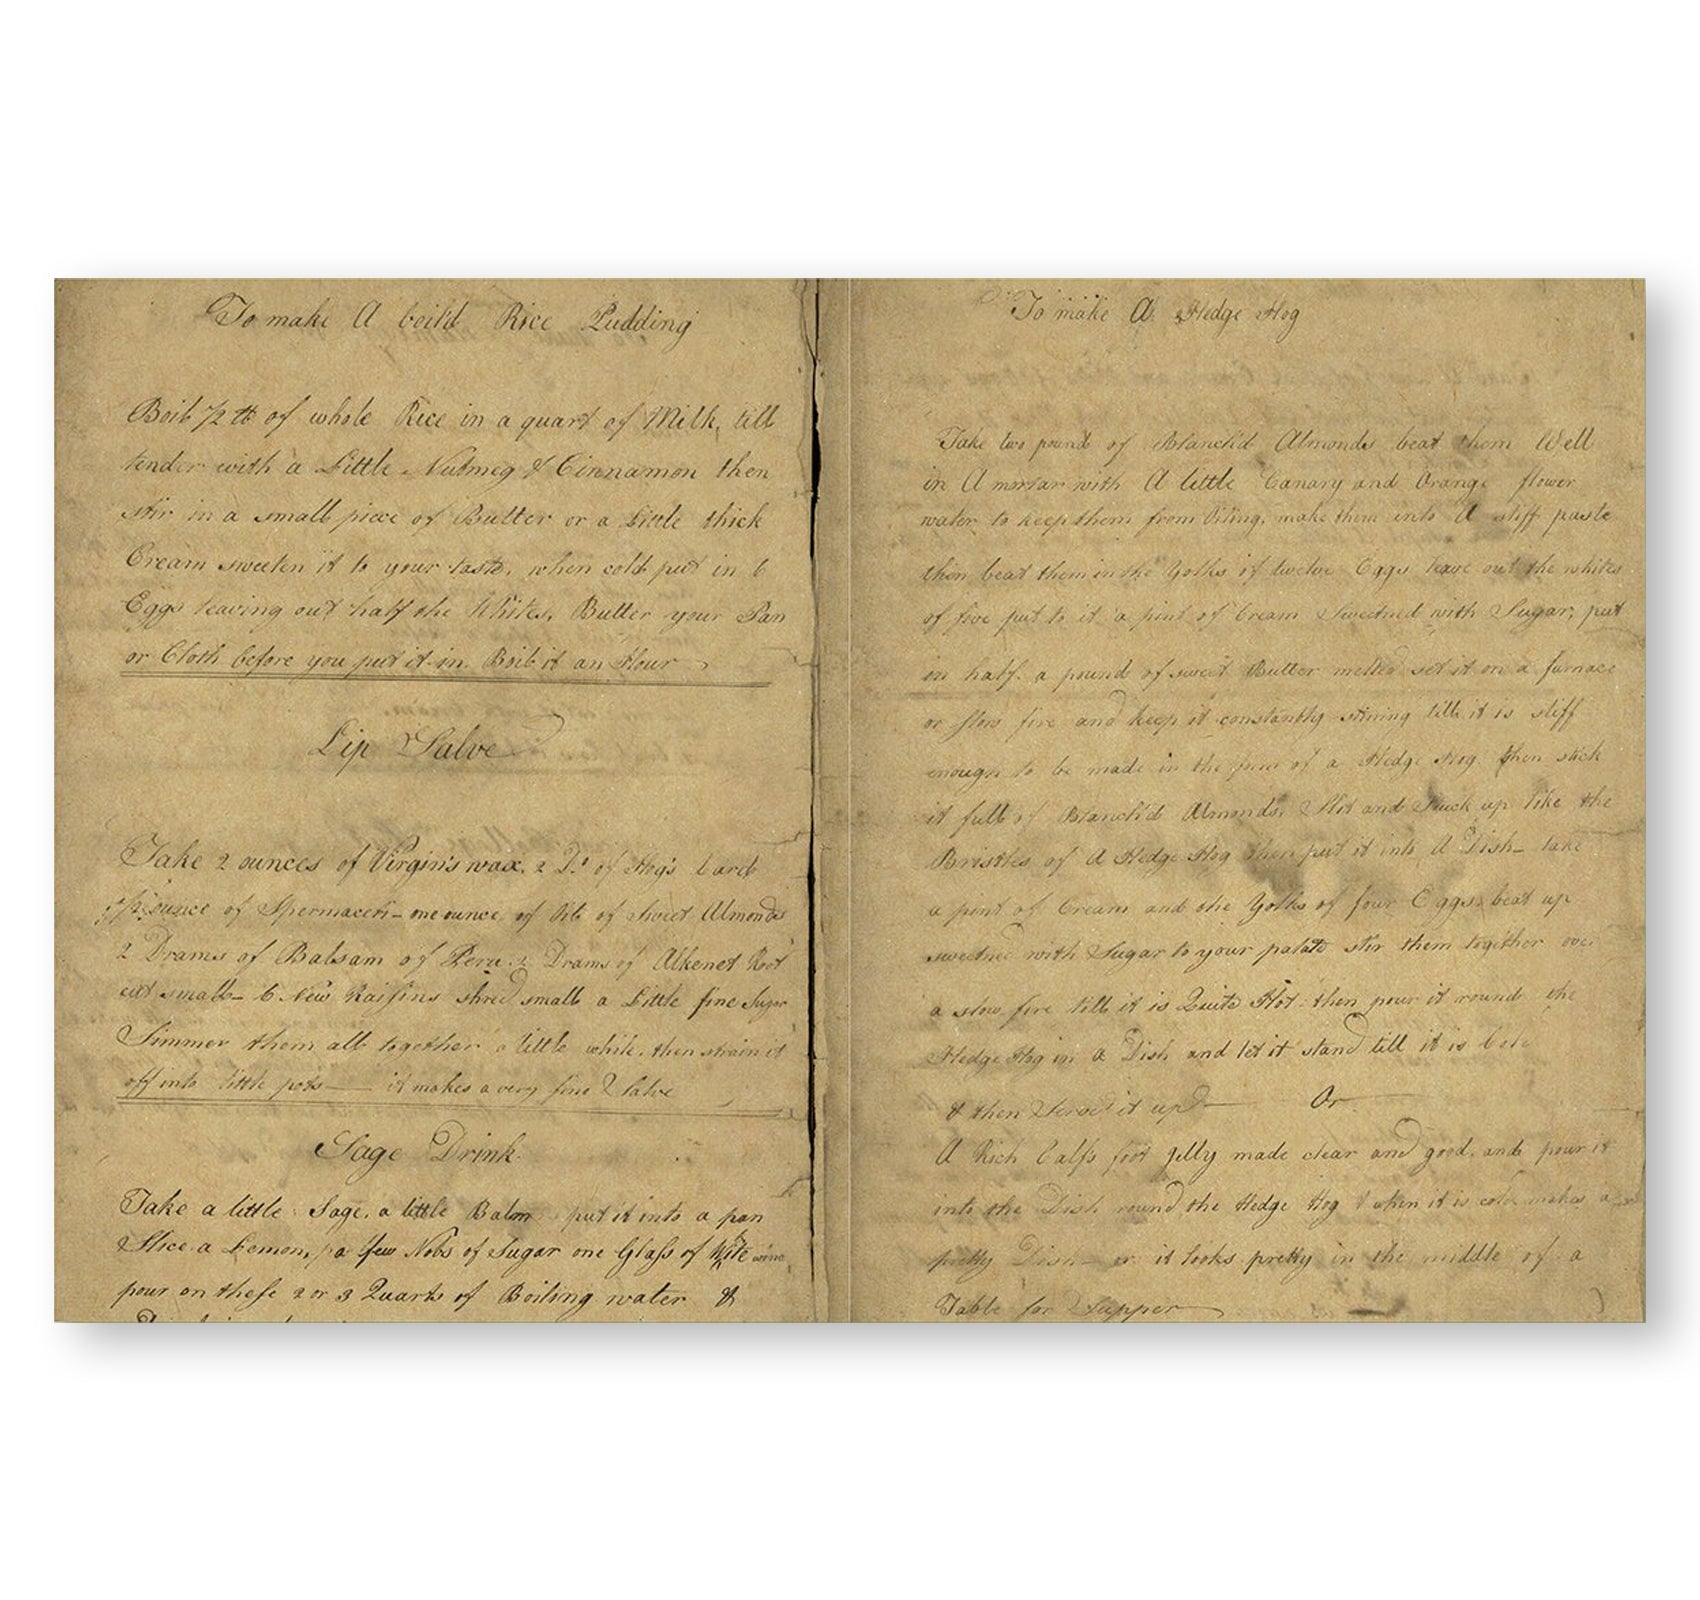 To make A boild Rice Pudding
Boil 1/2 lb of whole Rice in a quart of Milk, till
tender with a Little Nutmeg & Cinnamon then
stir in a small piece of Butter or a Little thick
Cream sweeten it to your taste, when cold put in 6
Eggs leaving out half the Whites, Butter your Pan
or Cloth before you put it in. Boil it an Hour
Lip Salve
Take 2 ounces of Virgin's wax, 2 Do of Hog's Lard
1/2 ounce of Spermaceti - one ounce, of Oil of Sweet Almonds
2 Drams of Balsam of Peru. 2 Drams of Alkenet Root
cut small - 6 New Raisins shred small a Little fine Sugar
Simmer them all together a little while, then strain it
off into little pots — it makes a very fine Salve
Sage Drink.
Take a little Sage, a little Balm put it into a pan
Slice a Lemon, a few Nobs of Sugar one Glass of Wite wine
pour on these 2 or 3 Quarts of Boiling water &
To make A Hedge Hog
Take two pound of Blanch'd Almonds beat them Well
in A mortar with A little Canary and Orange flower
water to keep them from Oiling, make them into A stiff paste
then beat them in the Yolks of twelve Eggs leave out the whites
of five put to it a pint of Cream Sweetned with Sugar, put
in half a pound of sweet Butter melted set it on a furnace
or slow fire and keep it constantly stirring till it is stiff
enough to be made in the form of a Hedge Hog then stick
it full of Blanch'd Almonds, Slit and Stuck up like the
Bristles of A Hedge Hog then put it into A Dish - take
a pint of Cream and the Yolks of four Eggs beat up
sweetned with Sugar to your palate stir them together over
a slow fire till it is Quite Hot then pour it round the
Hedge Hog in a Dish and let it stand till it is
& then Serve it up — Or
A Rich Calfs foot Jelly made clear and good, and pour it
into the Dish round the Hedge Hog & when it is cold makes a
pretty Dish - or it looks pretty in the middle of a
Table for Supper